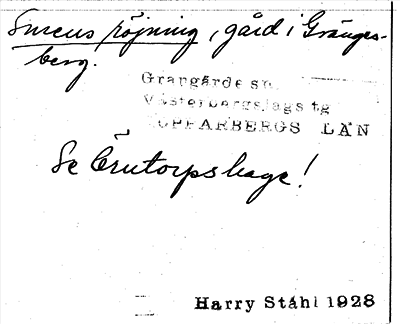 Smens röjning, gård i Gränges-
berg.
Grangärde sn.
Västerbergslags tg
KOPPARBERGS LÄN
Se Örntorpshage!
Harry Ståhl 1928